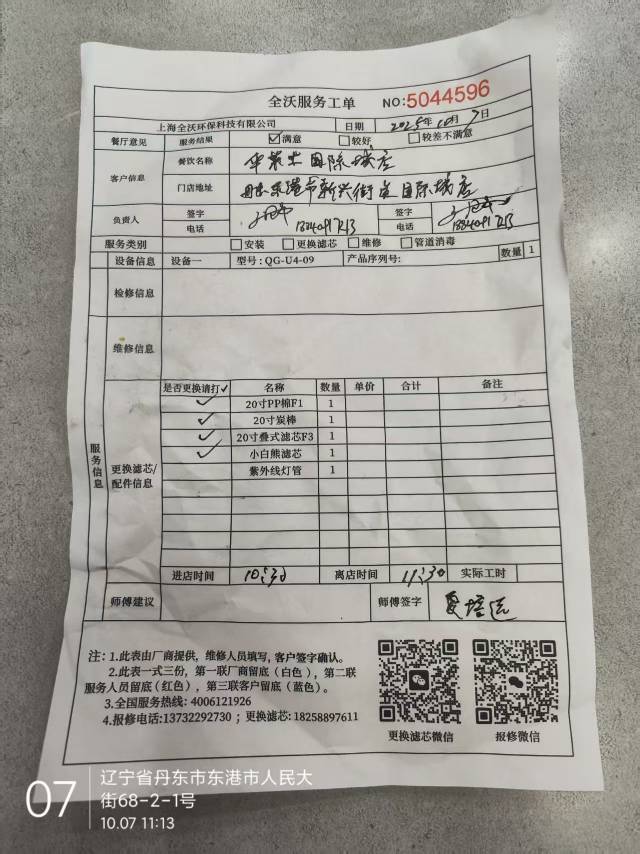 全沃服务工单 NO:5044596
上海全沃环保科技有限公司 日期 2025年10月7日
餐厅意见 服务结果 ☑满意 □较好 □较差不满意
客户信息 餐饮名称 华莱士国际城店
门店地址 丹东东港市新兴街道国际城店
负责人 签字 签字
电话 电话
服务类别 □安装 □更换滤芯 □维修 □管道消毒
设备信息 设备一 型号:QG-U4-09 产品序列号: 数量 1
检修信息
维修信息
服务信息
更换滤芯/配件信息
是否更换请打✓ 名称 数量 单价 合计 备注
✓ 20寸PP棉F1 1
✓ 20寸炭棒 1
✓ 20寸叠式滤芯F3 1
✓ 小白熊滤芯 1
紫外线灯管 1
进店时间 10:30 离店时间 11:30 实际工时
师傅建议 师傅签字 夏培远
注:1.此表由厂商提供,维修人员填写,客户签字确认。
2.此表一式三份,第一联厂商留底(白色),第二联
服务人员留底(红色),第三联客户留底(蓝色)。
3.全国服务热线: 4006121926
4.报修电话:13732292730;更换滤芯:18258897611
更换滤芯微信 报修微信
07
辽宁省丹东市东港市人民大
街68-2-1号
10.07 11:13